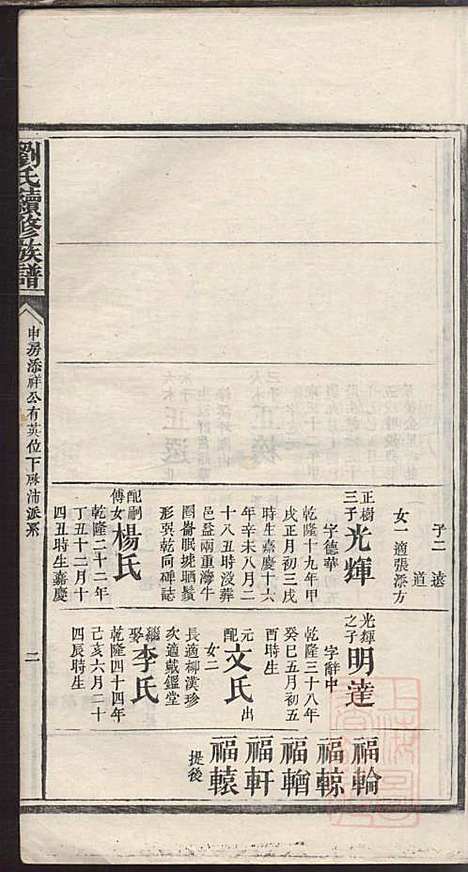 劉氏續修族譜
申房添祥公有英位下廕沛派系
二
子二 遠
道
女一適張漂方
正樹三子光輝
字德華
乾隆十九年甲
戌正月初三戌
時生嘉慶十六
年辛未八月二
十八丑時沒葬
邑益南重灣牛
圈崙眠坡晒鬚
形巽乾同碑誌
配嗣傅女楊氏
乾隆二十二年
丁丑十二月十
四丑時生嘉慶
光輝之子明逵
字辭中
乾隆三十八年
癸巳五月初五
酉時生
元配文氏出
女二
長適柳漢珍
次適戴鑑堂
繼娶李氏
乾隆四十四年
己亥六月二十
四辰時生
福輪
福輬
福輶
福軒
福轅
提後